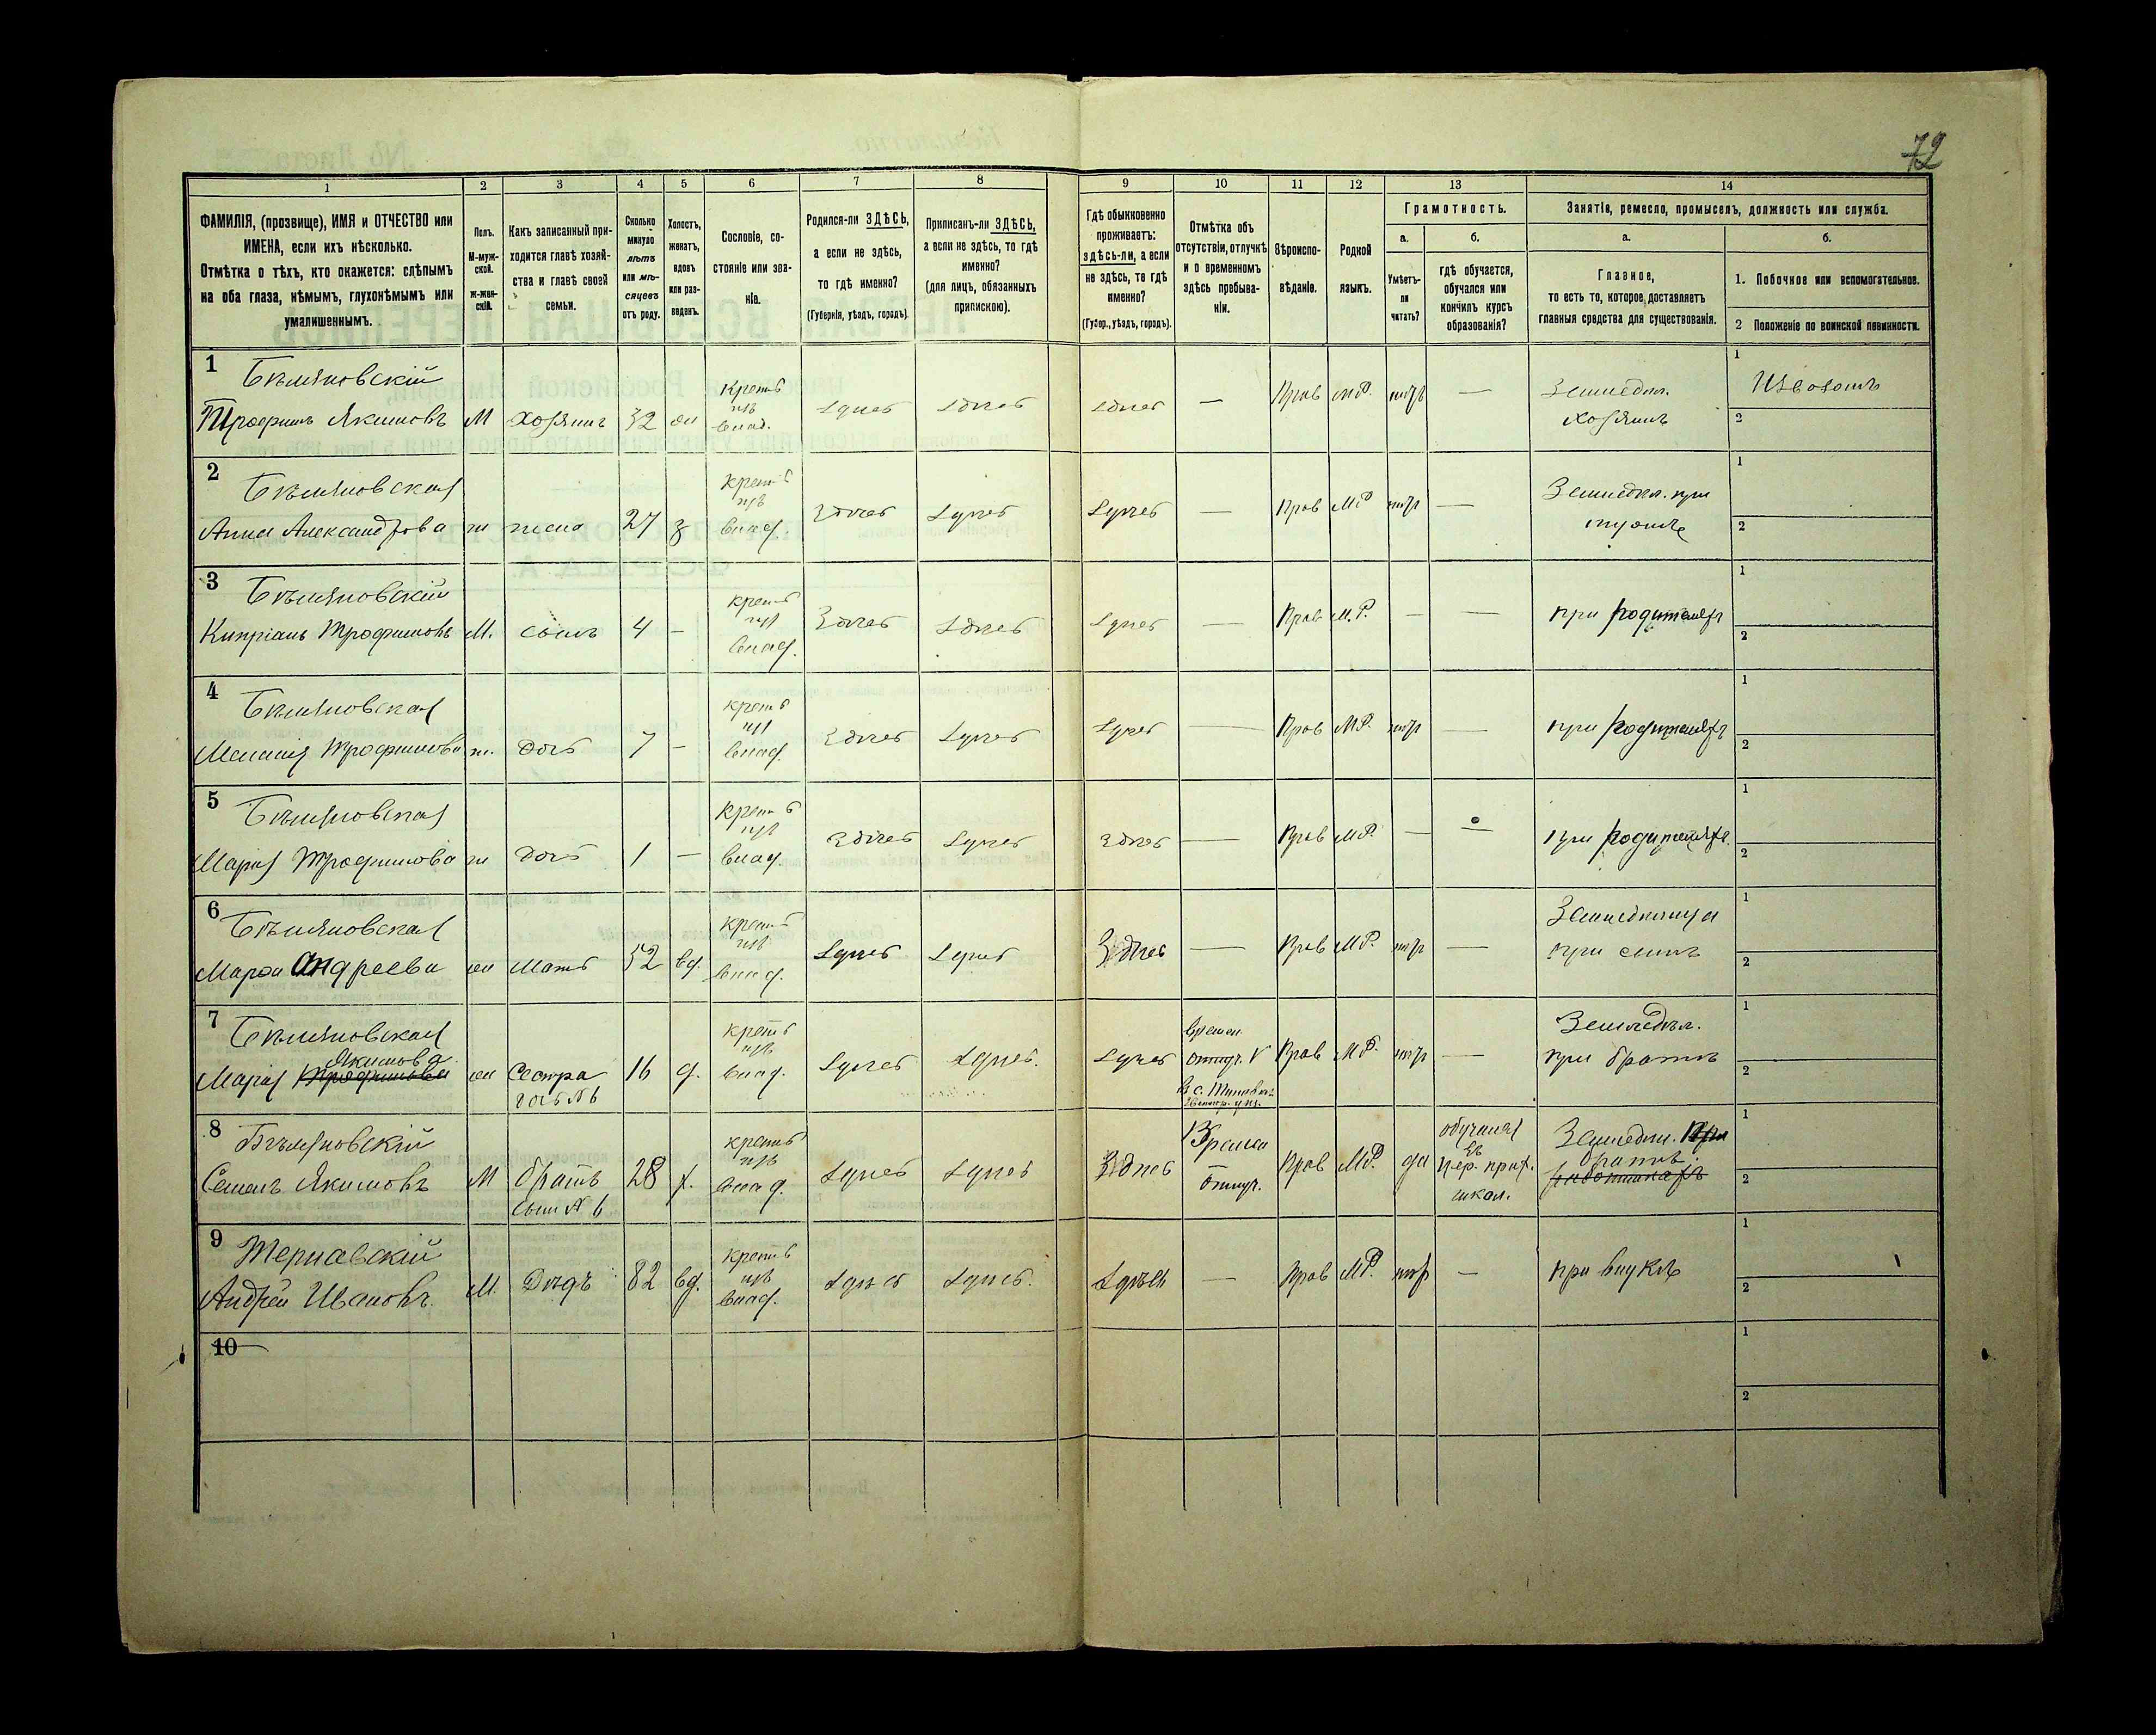 72
1 2 3 4 5 6 7 8 9 10 11 12 13 14
ФАМИЛІЯ, (прозвище), ИМЯ и ОТЧЕСТВО или
ИМЕНА, если ихъ нѣсколько.
Отмѣтка о тѣхъ, кто окажется: слѣпымъ
на оба глаза, нѣмымъ, глухонѣмымъ или
умалишеннымъ.
Полъ.
М-муж-
ской.
ж-жен-
скій.
Какъ записанный при-
ходится главѣ хозяй-
ства и главѣ своей
семьи.
Сколько
минуло
лѣтъ
или мѣ-
сяцевъ
отъ роду.
Холостъ,
женатъ,
вдовъ
или раз-
веденъ.
Сословіе, со-
стояніе или зва-
ніе.
Родился-ли ЗДѢСЬ,
а если не здѣсь,
то гдѣ именно?
(Губернія, уѣздъ, городъ).
Приписанъ-ли ЗДѢСЬ,
а если не здѣсь, то гдѣ
именно?
(для лицъ, обязанныхъ
припискою).
Гдѣ обыкновенно
проживаетъ:
здѣсь-ли, а если
не здѣсь, то гдѣ
именно?
(Губер., уѣздъ, городъ).
Отмѣтка объ
отсутствіи, отлучкѣ
и о временномъ
здѣсь пребыва-
ніи.
Вѣроиспо-
вѣданіе.
Родной
языкъ.
Грамотность.
а.
Умѣетъ-
ли
читать?
б.
гдѣ обучается,
обучался или
кончилъ курсъ
образованія?
Занятіе, ремесло, промыселъ, должность или служба.
а.
Главное,
то есть то, которое доставляетъ
главныя средства для существованія.
б.
1. Побочное или вспомогательное.
2 Положеніе по воинской повинности.
1
Бѣляновскій
Трофимъ Якимовъ М хозяинъ 32 жн
Крест
изъ
влад.
Здѣсь Здѣсь Здѣсь — Прав МР. нѣтъ —
Земледѣл.
хозяинъ
1 Извозомъ
2
2
Бѣляновская
Анна Александрова ж жена 27 з
крест
изъ
влад.
Здѣсь Здѣсь Здѣсь — Прав МР нѣтъ —
Земледѣл. при
мужѣ
1
2
3
Бѣляновскій
Кипріанъ Трофимовъ М. сынъ 4 —
крест
изъ
влад.
Здѣсь Здѣсь Здѣсь — Прав М.Р. — —
при родителяхъ
1
2
4
Бѣляновская
Меланія Трофимова ж. дочь 7 —
крест
изъ
влад.
Здѣсь Здѣсь Здѣсь — Прав МР. нѣтъ —
при родителяхъ
1
2
5
Бѣляновская
Марія Трофимова ж дочь 1 —
крест
изъ
влад.
Здѣсь Здѣсь Здѣсь — Прав МР. — —
при родителяхъ.
1
2
6
Бѣляновская
Марфа Андреева ж Мать 52 вд.
крест
изъ
влад.
Здѣсь Здѣсь Здѣсь — Прав МР. нѣтъ —
Земледѣлица
при сынѣ
1
2
7
Бѣляновская
Якимова
Марія Трофимова ж Сестра 16 д.
дочь №6
крест
изъ
влад.
Здѣсь Здѣсь. Здѣсь
времен.
отлуч. V
Прав МР. нѣтъ —
Земледѣл.
при братѣ
1
2
8
Бѣляновскій
Семенъ Якимовъ М братъ 28 х.
сынъ №6
крест
изъ
влад.
Здѣсь Здѣсь Здѣсь
Время
отлуч.
Прав МР. да
обучался
въ
Цер. прих.
школ.
Земледѣл. При
братѣ.
работникахъ
1
2
9
Терновскій
Андрей Ивановъ. М. Дѣдъ 82 вд.
крест
изъ
влад.
Здѣсь Здѣсь. Здѣсь — Прав МР. нѣтъ —
при внукѣ
1
2
10
1
2